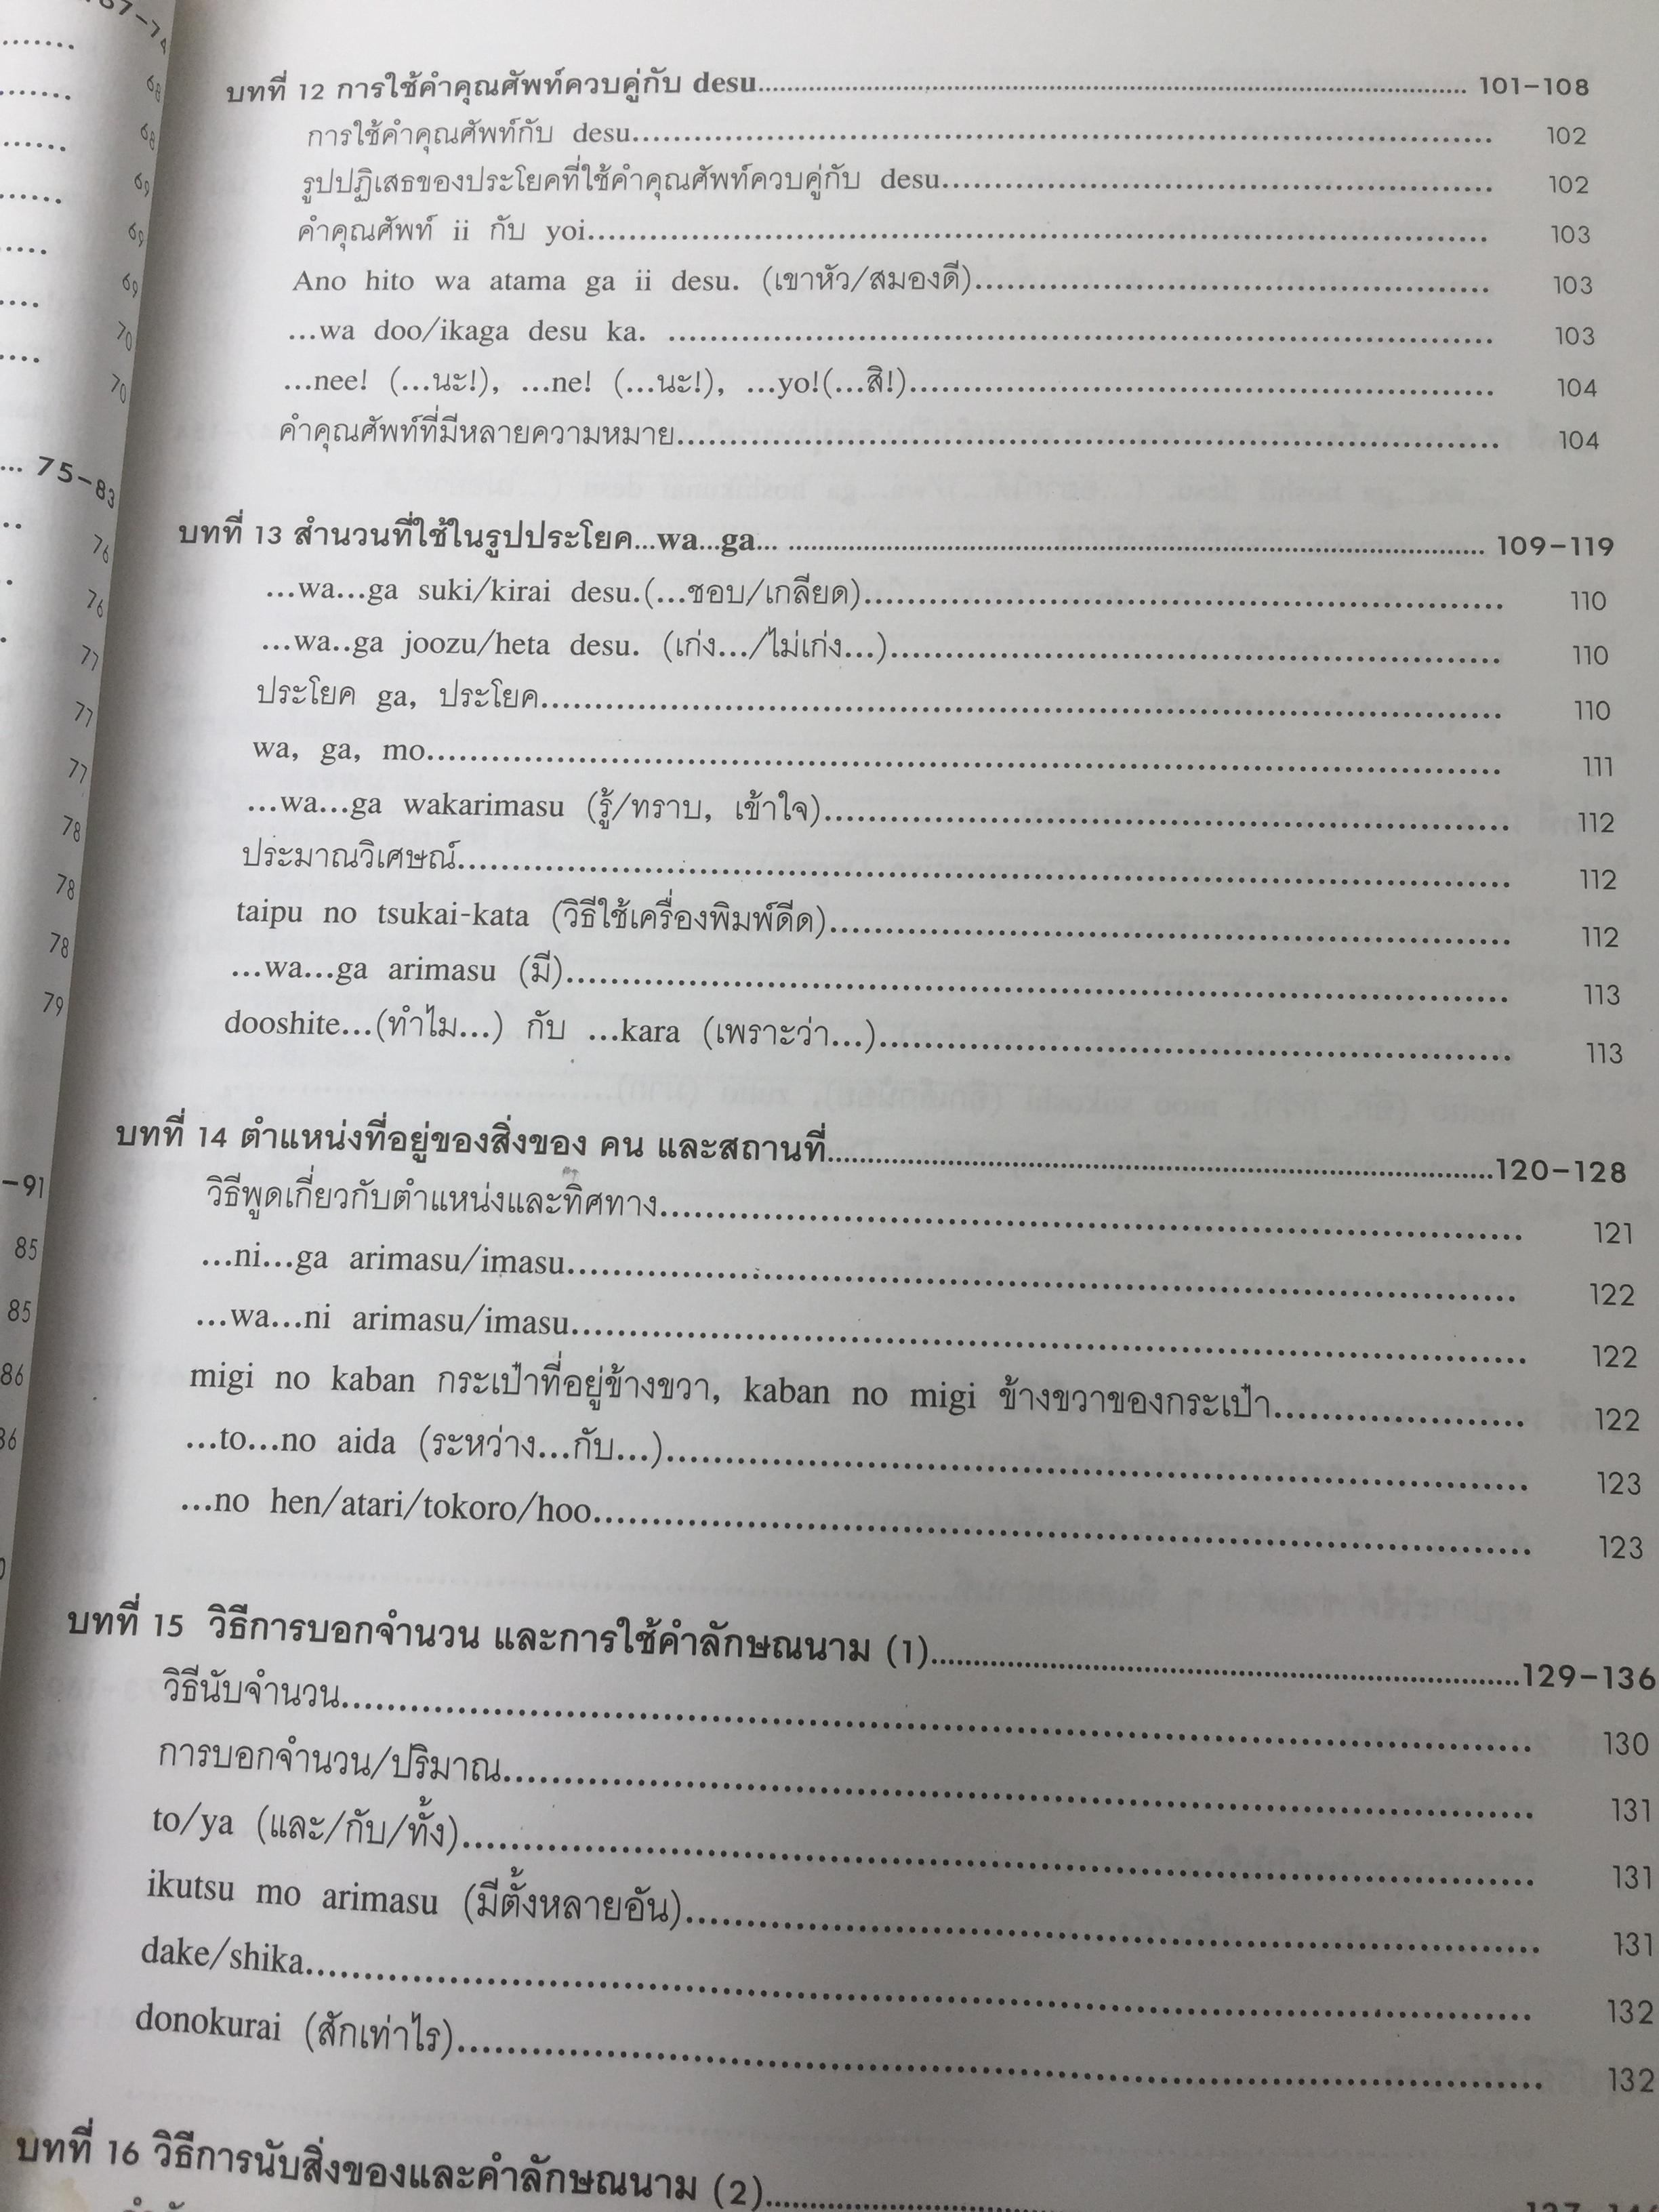 67-74
68
68
69
69
69
70
70
75-83
76
76
77
77
77
78
78
78
79
-91
85
85
86
86
บทที่ 12 การใช้คำคุณศัพท์ควบคู่กับ desu.......... 101-108
การใช้คำคุณศัพท์กับ desu.......... 102
รูปปฏิเสธของประโยคที่ใช้คำคุณศัพท์ควบคู่กับ desu.......... 102
คำคุณศัพท์ ii กับ yoi.......... 103
Ano hito wa atama ga ii desu. (เขาหัว/สมองดี).......... 103
...wa doo/ikaga desu ka. .......... 103
...nee! (...นะ!), ...ne! (...นะ!), ...yo!(...สิ!).......... 104
คำคุณศัพท์ที่มีหลายความหมาย.......... 104
บทที่ 13 สำนวนที่ใช้ในรูปประโยค...wa...ga... .......... 109-119
...wa...ga suki/kirai desu.(...ชอบ/เกลียด).......... 110
...wa..ga joozu/heta desu. (เก่ง.../ไม่เก่ง...).......... 110
ประโยค ga, ประโยค.......... 110
wa, ga, mo.......... 111
...wa...ga wakarimasu (รู้/ทราบ, เข้าใจ).......... 112
ประมาณวิเศษณ์.......... 112
taipu no tsukai-kata (วิธีใช้เครื่องพิมพ์ดีด).......... 112
...wa...ga arimasu (มี).......... 113
dooshite...(ทำไม...) กับ ...kara (เพราะว่า...).......... 113
บทที่ 14 ตำแหน่งที่อยู่ของสิ่งของ คน และสถานที่..........120-128
วิธีพูดเกี่ยวกับตำแหน่งและทิศทาง.......... 121
...ni...ga arimasu/imasu.......... 122
...wa...ni arimasu/imasu.......... 122
migi no kaban กระเป๋าที่อยู่ข้างขวา, kaban no migi ข้างขวาของกระเป๋า.......... 122
...to...no aida (ระหว่าง...กับ...).......... 123
...no hen/atari/tokoro/hoo.......... 123
บทที่ 15 วิธีการบอกจำนวน และการใช้คำลักษณนาม (1)..........129-136
วิธีนับจำนวน.......... 130
การบอกจำนวน/ปริมาณ.......... 131
to/ya (และ/กับ/ทั้ง).......... 131
ikutsu mo arimasu (มีตั้งหลายอัน).......... 131
dake/shika.......... 132
donokurai (สักเท่าไร).......... 132
บทที่ 16 วิธีการนับสิ่งของและคำลักษณนาม (2)..........